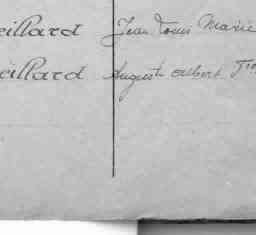 eillard Jean Louis Marie
eillard Auguste Albert